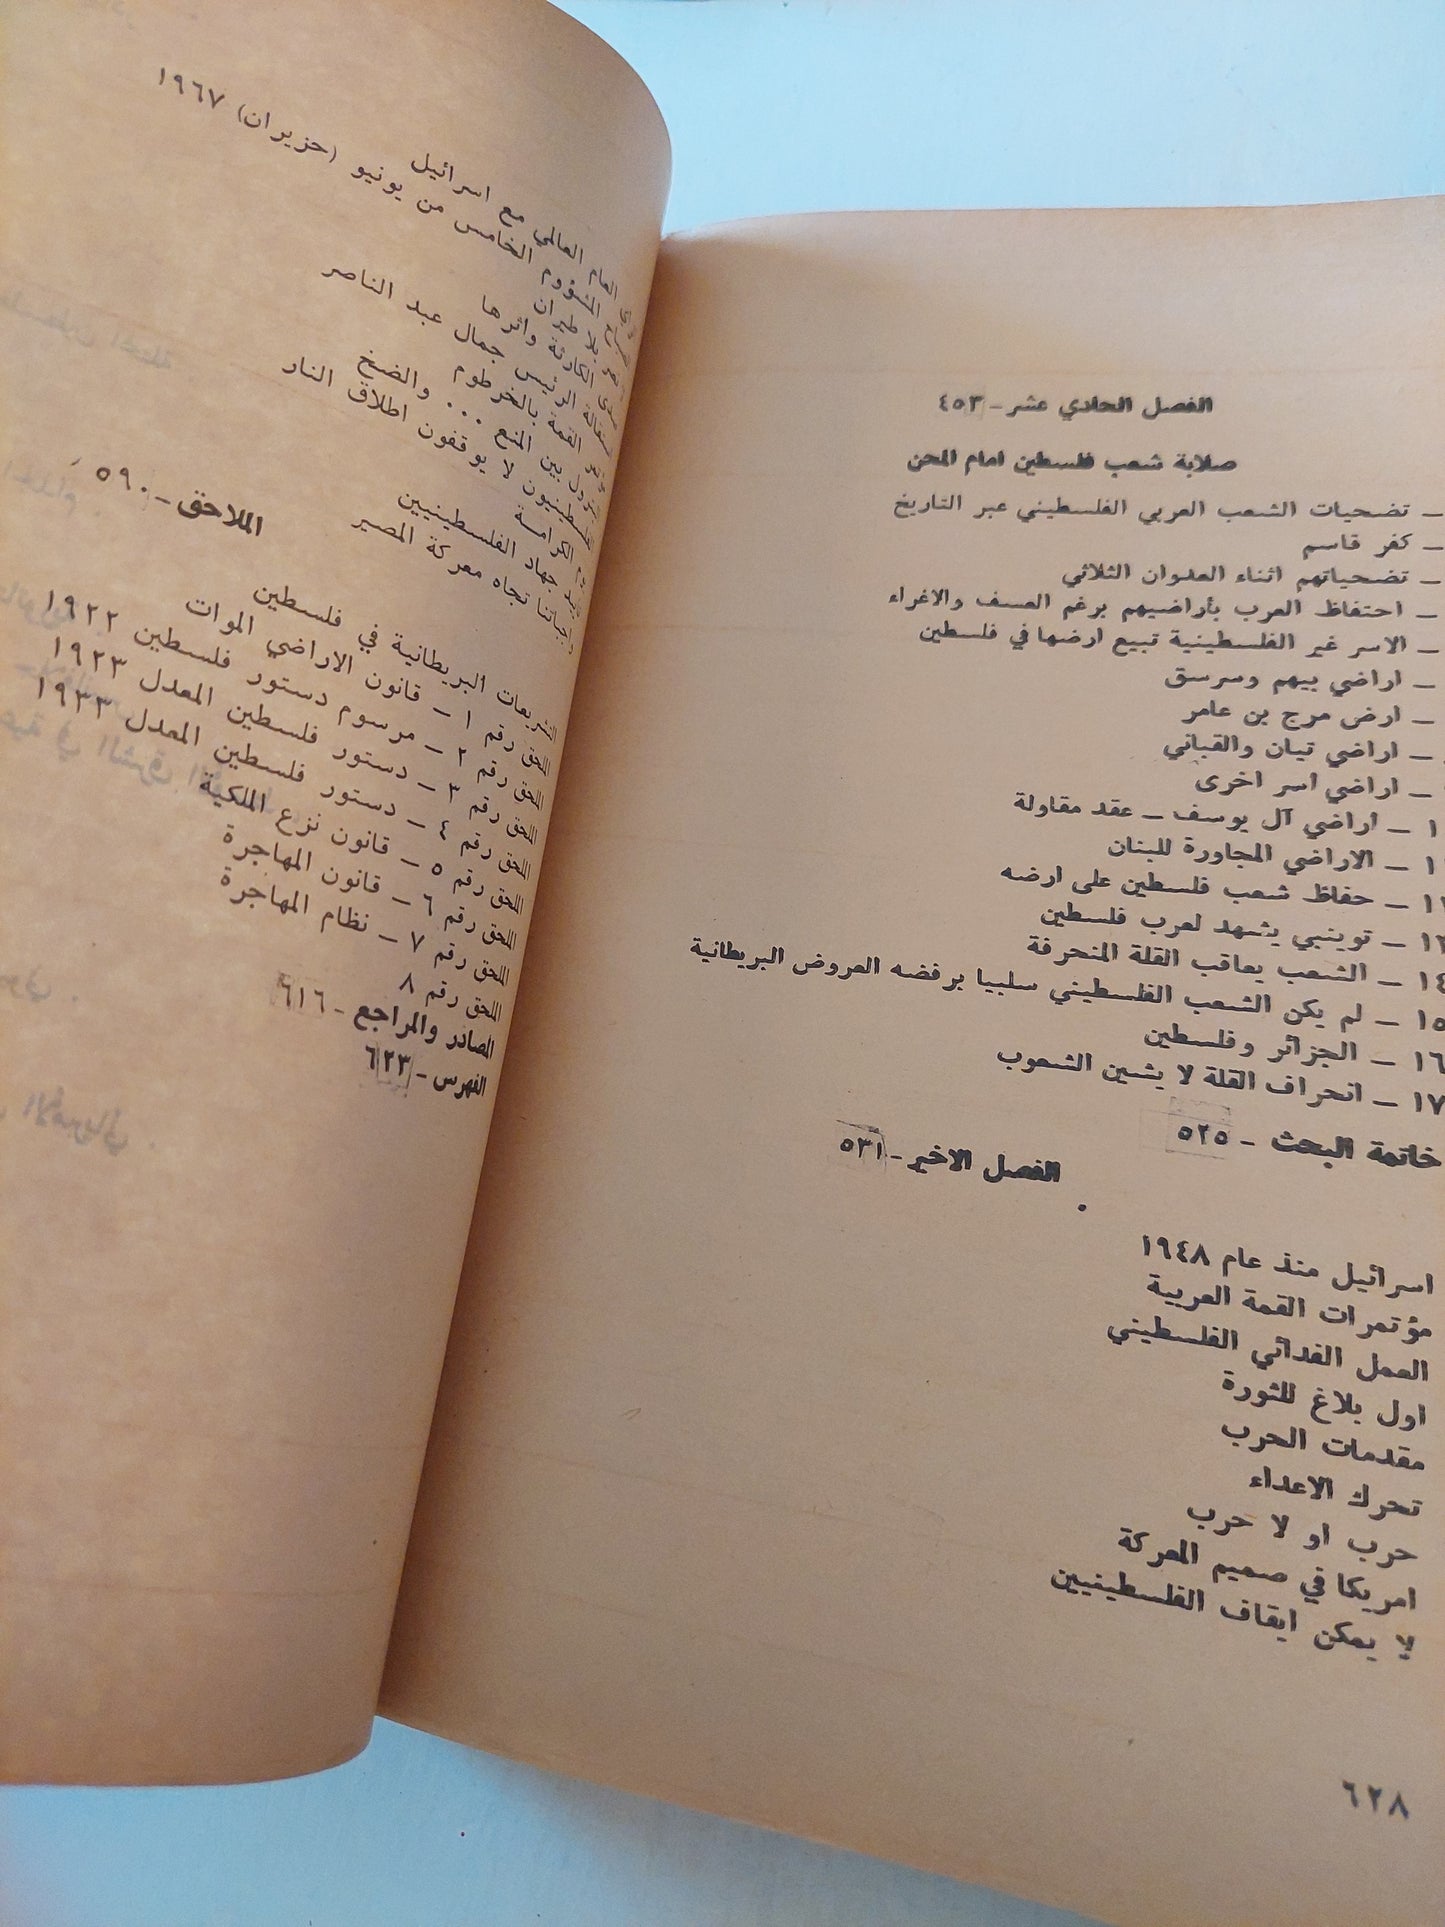 الفصل الحادي عشر - ٤٥٣
صلابة شعب فلسطين امام المحن
ـ تضحيات الشعب العربي الفلسطيني عبر التاريخ
ـ كفر قاسم
ـ تضحياتهم اثناء العدوان الثلاثي
ـ احتفاظ العرب بأراضيهم برغم العسف والاغراء
ـ الاسر غير الفلسطينية تبيع ارضها في فلسطين
ـ اراضي بيهم وسرسق
ـ ارض مرج بن عامر
ـ اراضي تيان والقباني
ـ اراضي اسر اخرى
ـ اراضي آل يوسف ـ عقد مقاولة
ـ الاراضي المجاورة للبنان
ـ حفاظ شعب فلسطين على ارضه
ـ توينبي يشهد لعرب فلسطين
١٤ ـ الشعب يعاقب القلة المنحرفة
١٥ ـ لم يكن الشعب الفلسطيني سلبيا برفضه العروض البريطانية
١٦ ـ الجزائر وفلسطين
١٧ ـ انحراف القلة لا يشين الشعوب
خاتمة البحث - ٥٢٥
الفصل الاخير - ٥٣١
اسرائيل منذ عام ١٩٤٨
مؤتمرات القمة العربية
العمل الفدائي الفلسطيني
اول بلاغ للثورة
مقدمات الحرب
تحرك الاعداء
حرب او لا حرب
امريكا في صميم المعركة
لا يمكن ايقاف الفلسطينيين
٦٢٨
العام العالمي مع اسرائيل
المشؤوم الخامس من يونيو (حزيران) ١٩٦٧
بلا طيران
الكارثة واثرها
الرئيس جمال عبد الناصر
القمة بالخرطوم
بين المنع ... والضخ
لا يوقفون اطلاق النار
الكرامة
جهاد الفلسطينيين
تجاه معركة المصير
الملاحق - ٥٩٠
التشريعات البريطانية في فلسطين
الملحق رقم ١ ـ قانون الاراضي الموات
الملحق رقم ٢ ـ مرسوم دستور فلسطين ١٩٢٢
الملحق رقم ٣ ـ دستور فلسطين المعدل ١٩٢٣
الملحق رقم ٤ ـ دستور فلسطين المعدل ١٩٣٣
الملحق رقم ٥ ـ قانون نزع الملكية
الملحق رقم ٦ ـ قانون المهاجرة
الملحق رقم ٧ ـ نظام المهاجرة
الملحق رقم ٨
المصادر والمراجع - ٦١٦
الفهرس - ٦٢٣